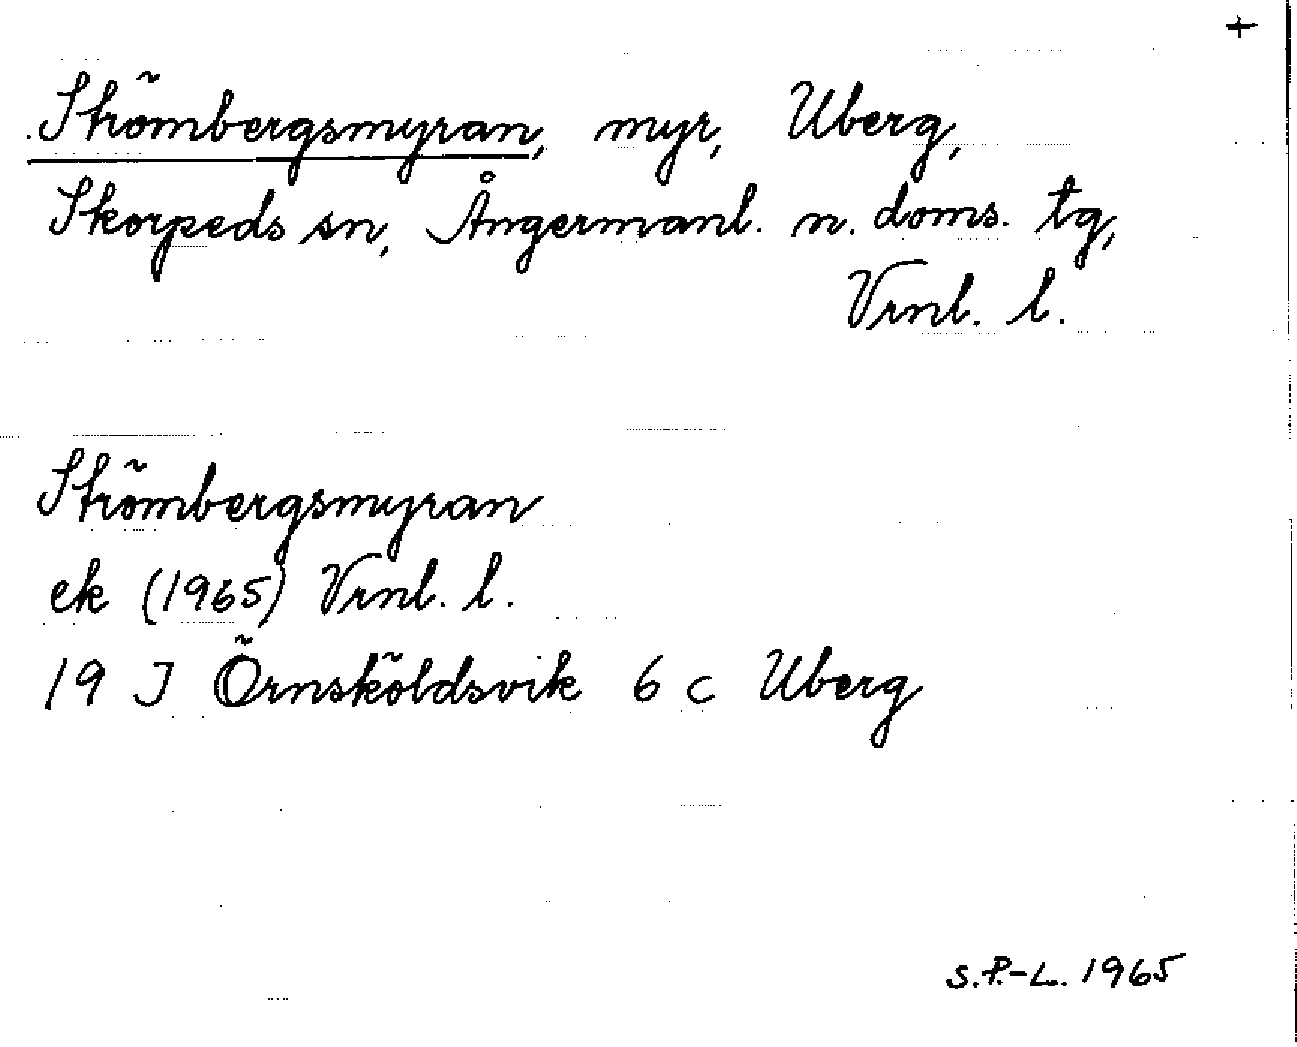 +
Strömbergsmyran, myr, Uberg,
Skorpeds sn, Ångermanl. n. doms. tg,
Vrnl. l.
Strömbergsmyran
ek (1965) Vrnl. l.
19 J Örnsköldsvik 6 c Uberg
S.P.-L. 1965